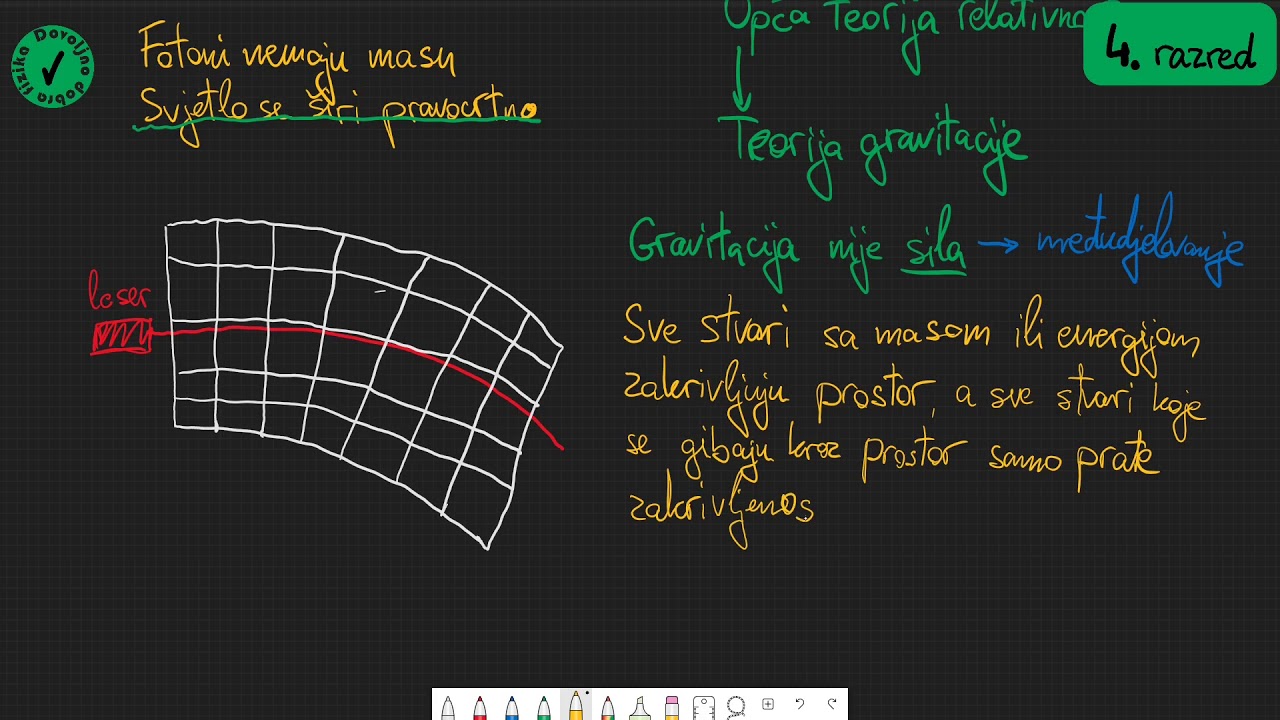 Dovoljno dobra fizika
Fotoni nemaju masu
Svjetlo se širi pravocrtno
Opća Teorija relativnos
4. razred
Teorija gravitacije
Gravitacija nije sila → međudjelovanje
laser
Sve stvari sa masom ili energijom
zakrivljuju prostor, a sve stvari koje
se gibaju kroz prostor samo prate
zakrivljenos